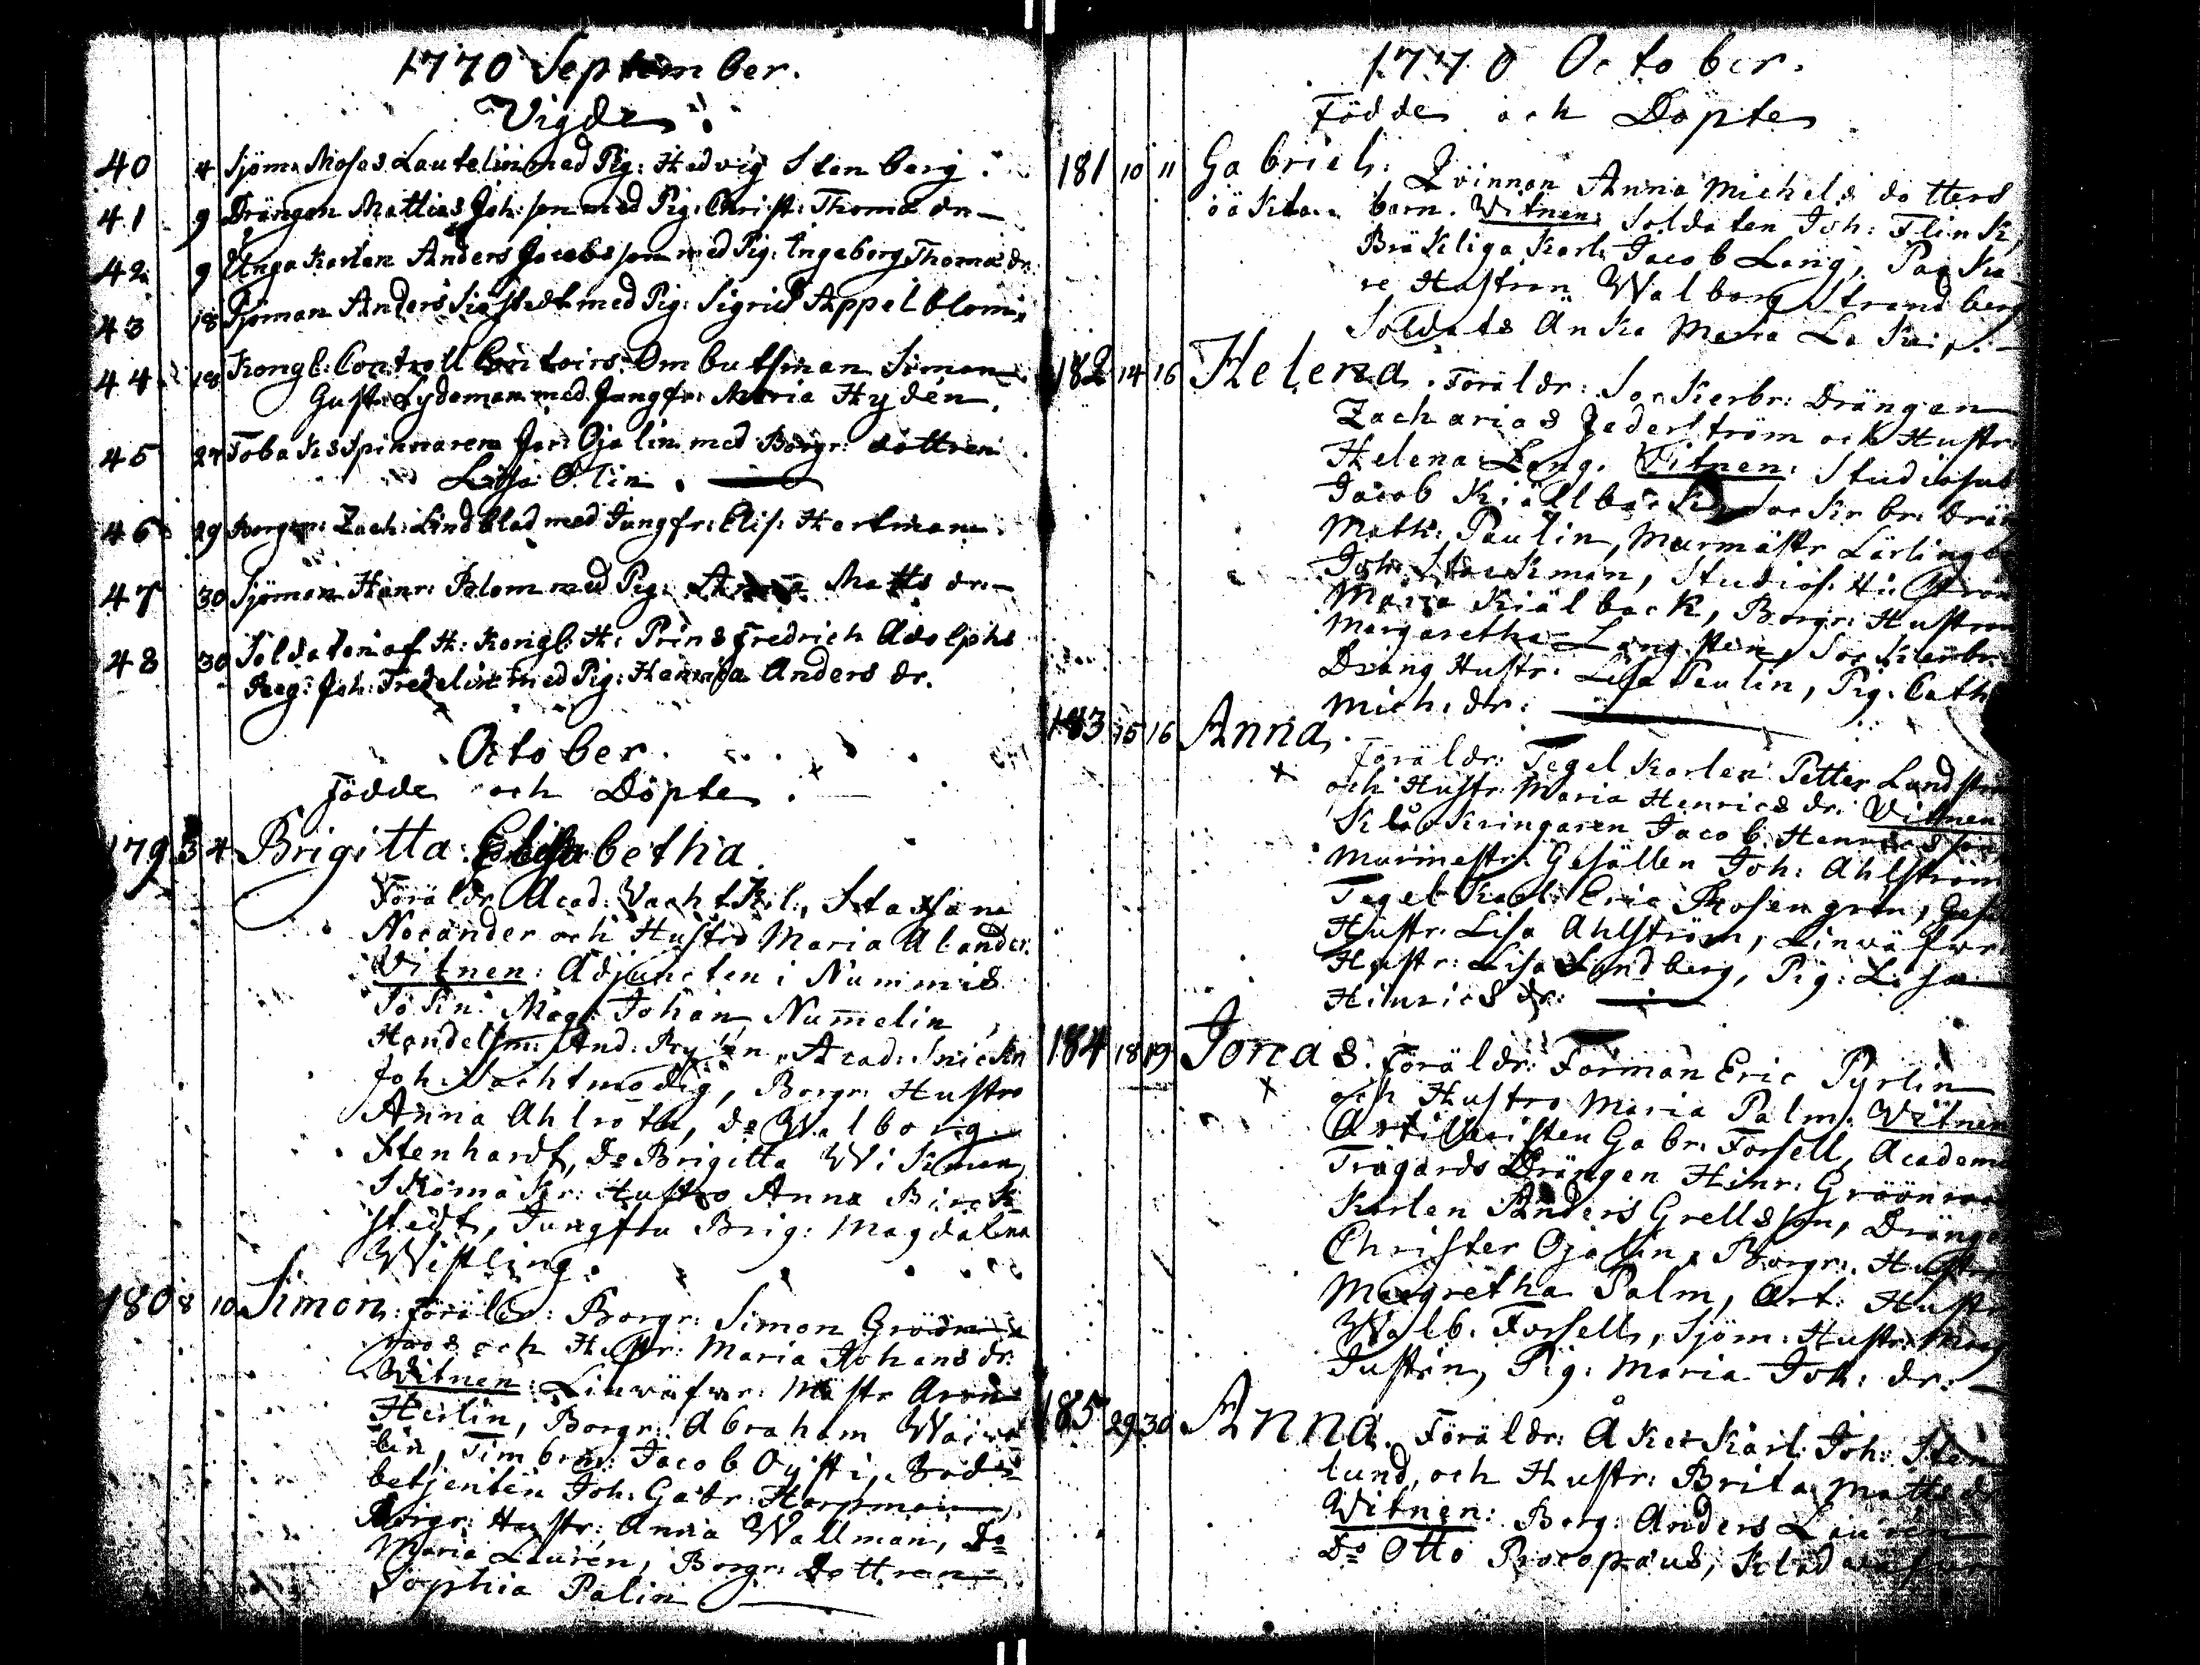 1770 September.
Vigde
40 4 Sjöm: Moses Lautelin med Pig: Hedvig Stenberg.
41 9 Drängen Mattias Joh:son med Pig: Christ: Thomæ dr
42 9 Unga Karlen Anders Jacobsson med Pig: Ingeborg Thomæ dr.
43 18 Sjöman Anders Siöstedt med Pig: Sigrid Appelblom.
44 18 Kongl: Controll Contoirs Ombutsman Simon
Gust: Lydeman med Jungfr: Maria Hydén.
45 27 Tobaks Spinnaren Jac: Ojalin med Borgr: dottren
Lisa Olin.
46 29 Borgar: Zach: Lindblad med Jungfr: Elis: Hartman.
47 30 Sjöman Henr: Blom med Pig: Matts dr
48 30 Soldaten af H: Kongl: H: Prins Fredrich Adolphs
Reg: Joh: Fredelin med Pig: Anders dr.
October.
Födde och Döpte.
179 3 4 Brigitta Elisabetha
Föräldr Acad: Vachtk:l:
Nocander och Hustro Maria Alander.
Vitnen: Adjuncten i Nummis
Sokn: Mag: Johan Num̄elin,
Handelsm: And: Acad: Snick
Joh: Nachtmodig, Borgr: Hustro
Anna Ahlroth, do Walborg
Stenhardt, do Brigitta Wikman,
Skomakr: Hustro Anna Birck
stedt, Jungfru Brig: Magdalena
Wistling.
180 8 10 Simon: Föräldr: Borgr: Simon Gröön
roos och Hustr: Maria Johans dr.
Witnen: Linwäfvr: Mästr Aron
Herlin, Borgr: Abraham
lin, Timbrm: Jacob Öysti, Bods
betjenten Joh: Gabr: Harpman,
Borgr: Hustr: Anna Wallman, Do
Maria Laurén, Borgr: dottren
Sophia Palin
1770 October.
Födde och Döpte
181 10 11 Gabriel: Qvinnan Anna Michels dotters
oäkta barn. Witnen: Soldaten Joh: Flink,
Bräkliga Karl: Jacob Lang,
re Hustrun Walborg Strandberg
Soldats Änka Maria
182 14 16 Helena. Föräldr: Sockerbr: Drängen
Zacharias Zederström och Hustr:
Helena Lang. Vitnen: Studiosus
Jacob Kiällback, Sockr br: drän
Math: Paulin, Murmästr Lärling
Joh: Stockman, Studios: Hustron
Maria Kiälback, Borgr: Hustron
Margaretha Langsten, Sockerbr:
Dräng Hustr: Lisa Paulin, Pig: Cath
Mich: dr:
183 15 16 Anna.
Föräldr: Tegel Karlen Petter Landst
och Hustr: Maria Henrics dr: Vittnen
Klåckringaren Jacob Henricsson
Murmestr: Gesällen Joh: Ahlström
Tegel Karl: Eric Rosengren, Gesä
Hustr: Lisa Ahlström, Linwäfvr
Hustr: Lisa Landberg, Pig: Lisa
Hinrics dr:
184 18 19 Jonas. Föräldr: Forman Eric Pyrlin
och Hustro Maria Palm. Witnen
Artilleristen Gabr: Forsell, Academ
Trägårds Drängen Hinr: Gröönroo
Karlen Anders Grellsson, Dränge
Christer Ojalin, Borgr: Hustr
Margretha Palm, Art: Hustr
Walb: Forsell, Sjöm: Hustr: Marg
Justin, Pig: Maria Joh: dr:
185 29 30 Anna. Föräldr: Åker Karl: Joh: Sten
lund, och Hustr: Brita Matts dr
Witnen: Borg: Anders Laurén
Do Otto Procopæus,